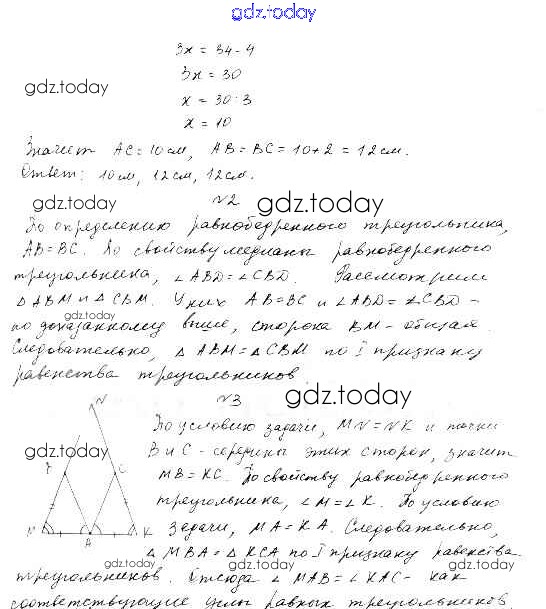 gdz.today
3x = 34 - 4
3x = 30
gdz.today
x = 30 : 3
x = 10
Значит AC = 10 см, AB = BC = 10 + 2 = 12 см.
Ответ: 10 см, 12 см, 12 см.
gdz.today №2 gdz.today
По определению равнобедренного треугольника,
AB = BC. По свойству медианы равнобедренного
треугольника, ∠ABD = ∠CBD. Рассмотрим
△ABM и △CBM. У них AB = BC и ∠ABD = ∠CBD -
gdz.today
по доказанному выше, сторона BM - общая.
Следовательно, △ABM = △CBM по I признаку
равенства треугольников
№3 gdz.today
N
По условию задачи, MN = NK и точки
gdz.today
B и C - середины этих сторон, значит
C
MB = KC. По свойству равнобедренного
треугольника, ∠M = ∠K. По условию
M A K
задачи, MA = KA. Следовательно,
△MBA = △KCA по I признаку равенства
gdz.today gdz.today gdz.today
треугольников. Отсюда ∠MAB = ∠KAC - как
соответствующие углы равных треугольников